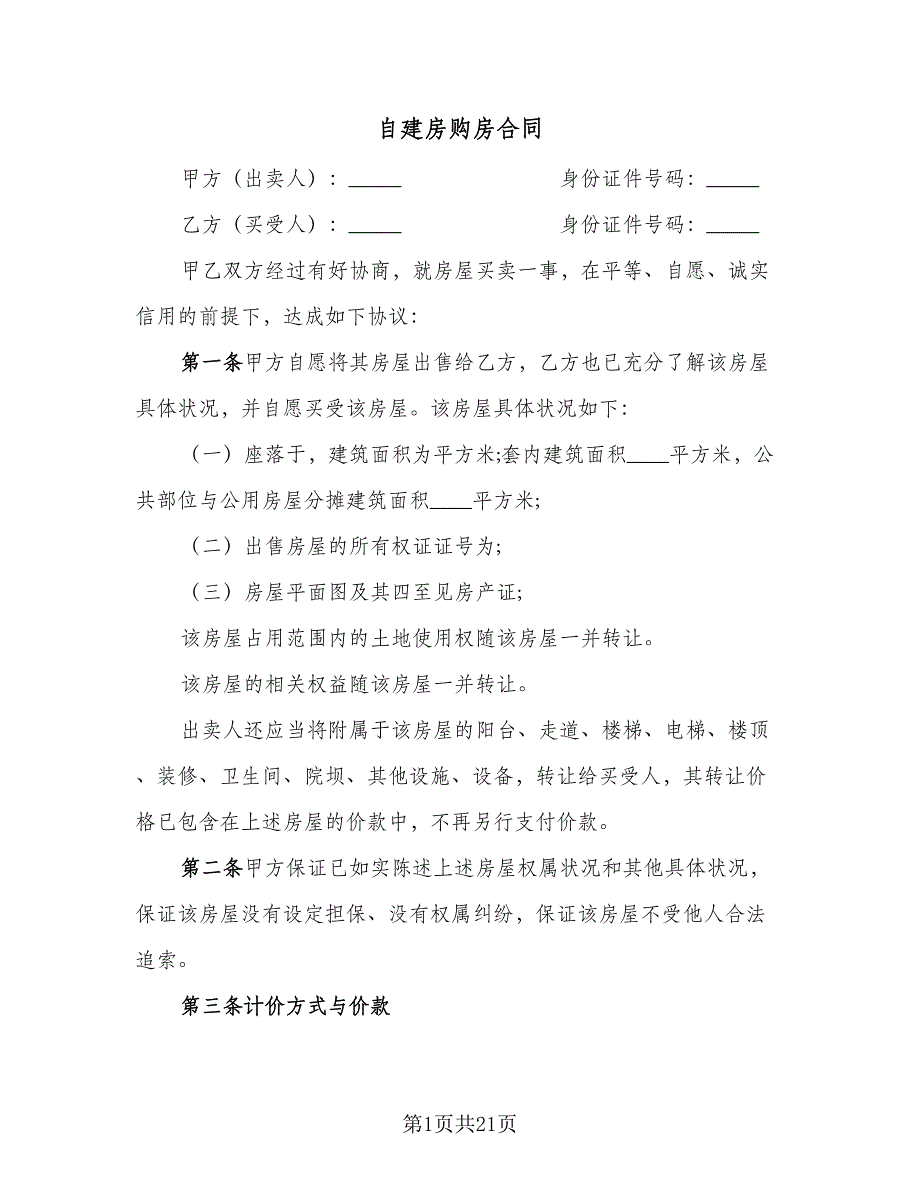 自建房购房合同
甲方（出卖人）：_____ 身份证件号码：_____
乙方（买受人）：_____ 身份证件号码：_____
甲乙双方经过有好协商，就房屋买卖一事，在平等、自愿、诚实
信用的前提下，达成如下协议：
第一条甲方自愿将其房屋出售给乙方，乙方也已充分了解该房屋
具体状况，并自愿买受该房屋。该房屋具体状况如下：
（一）座落于，建筑面积为平方米;套内建筑面积____平方米，公
共部位与公用房屋分摊建筑面积____平方米;
（二）出售房屋的所有权证证号为;
（三）房屋平面图及其四至见房产证;
该房屋占用范围内的土地使用权随该房屋一并转让。
该房屋的相关权益随该房屋一并转让。
出卖人还应当将附属于该房屋的阳台、走道、楼梯、电梯、楼顶
、装修、卫生间、院坝、其他设施、设备，转让给买受人，其转让价
格已包含在上述房屋的价款中，不再另行支付价款。
第二条甲方保证已如实陈述上述房屋权属状况和其他具体状况，
保证该房屋没有设定担保、没有权属纠纷，保证该房屋不受他人合法
追索。
第三条计价方式与价款
第1页共21页